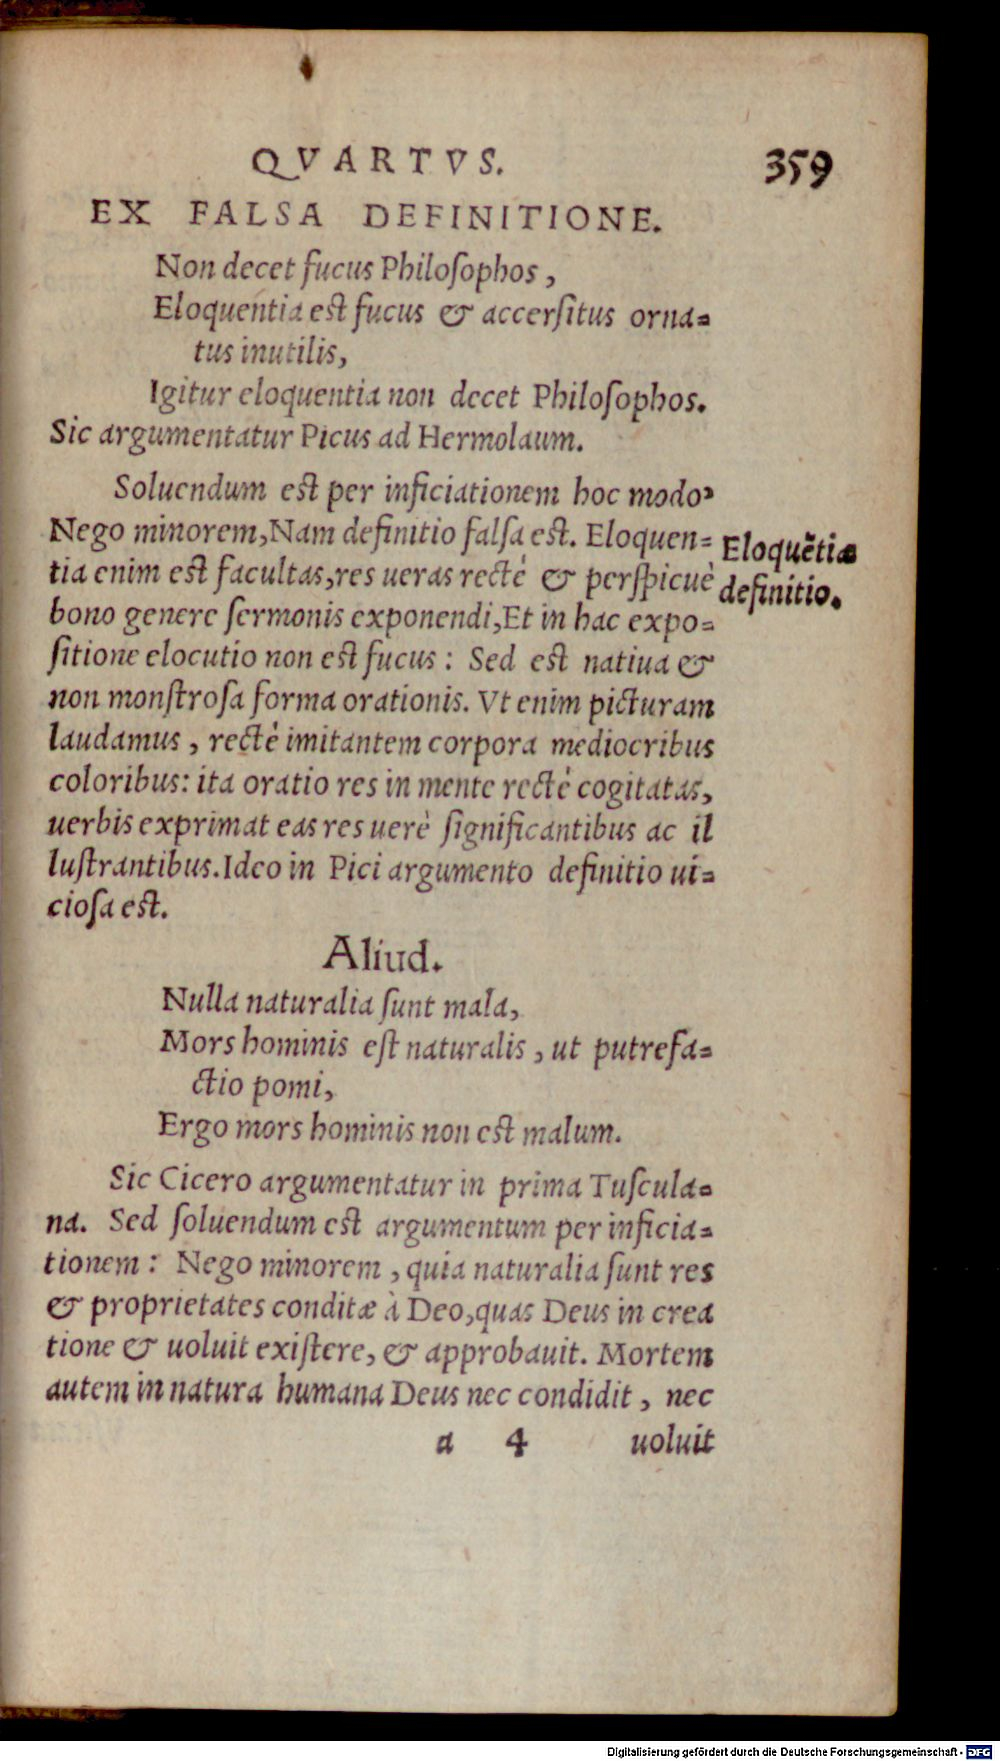 QVARTVS. 359
EX FALSA DEFINITIONE.
Non decet fucus Philoſophos,
Eloquentia eſt fucus & accerſitus orna=
tus inutilis,
Igitur eloquentia non decet Philoſophos.
Sic argumentatur Picus ad Hermolaum.
Soluendum eſt per inficiationem hoc modo,
Nego minorem, Nam definitio falſa eſt. Eloquen=
tia enim eſt facultas, res ueras rectè & perſpicuè
bono genere ſermonis exponendi, Et in hac expo=
ſitione elocutio non eſt fucus: Sed eſt natiua &
non monſtroſa forma orationis. Vt enim picturam
laudamus, rectè imitantem corpora mediocribus
coloribus: ita oratio res in mente rectè cogitatas,
uerbis exprimat eas res uerè ſignificantibus ac il
luſtrantibus. Ideo in Pici argumento definitio ui=
cioſa eſt.
Eloquẽtiæ
definitio.
Aliud.
Nulla naturalia ſunt mala,
Mors hominis eſt naturalis, ut putrefa=
ctio pomi,
Ergo mors hominis non eſt malum.
Sic Cicero argumentatur in prima Tuſcula=
na. Sed ſoluendum eſt argumentum per inficia=
tionem: Nego minorem, quia naturalia ſunt res
& proprietates conditæ à Deo, quas Deus in crea
tione & uoluit exiſtere, & approbauit. Mortem
autem in natura humana Deus nec condidit, nec
a 4 uoluit
Digitalisierung gefördert durch die Deutsche Forschungsgemeinschaft - DFG